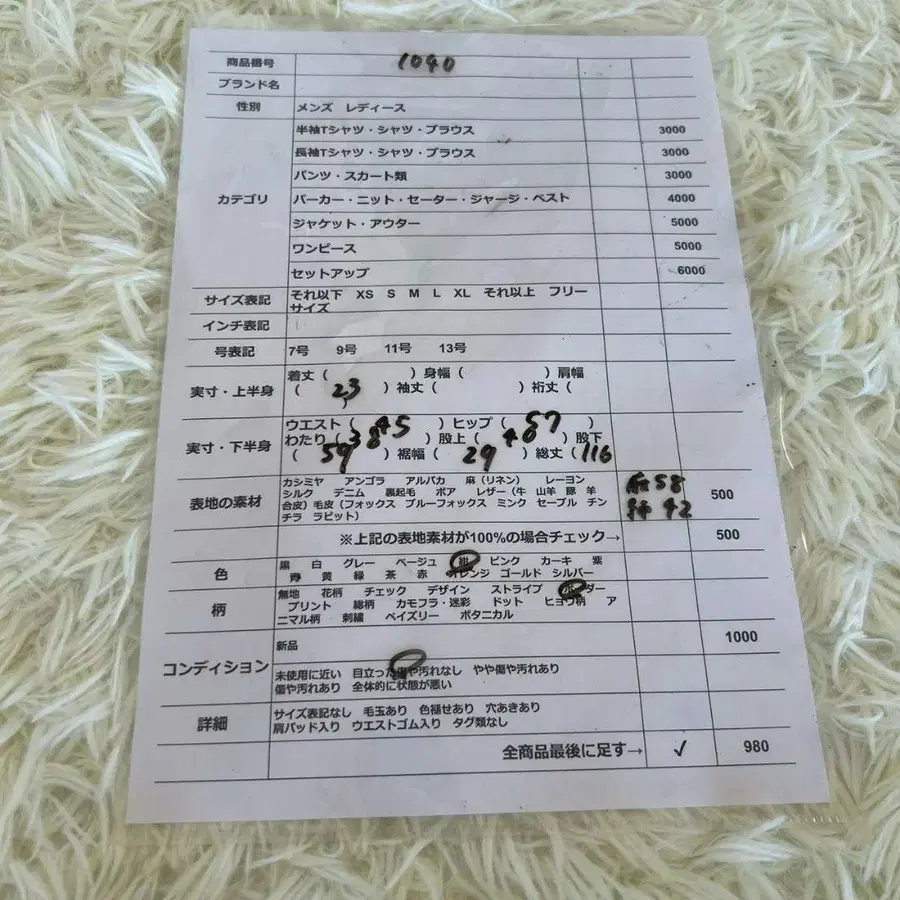 商品番号 1040
ブランド名
性別 メンズ レディース
カテゴリ
半袖Tシャツ・シャツ・ブラウス 3000
長袖Tシャツ・シャツ・ブラウス 3000
パンツ・スカート類 3000
パーカー・ニット・セーター・ジャージ・ベスト 4000
ジャケット・アウター 5000
ワンピース 5000
セットアップ 6000
サイズ表記 それ以下 XS S M L XL それ以上 フリー
サイズ
インチ表記
号表記 7号 9号 11号 13号
実寸・上半身
着丈( )身幅( )肩幅
( 23 )袖丈( )裄丈(
)
実寸・下半身
ウエスト( 45 )ヒップ( 57 )
わたり( 38 )股上( 48 )股下
( 59 )裾幅( 29 )総丈( 116
表地の素材
カシミヤ アンゴラ アルパカ 麻(リネン) レーヨン
シルク デニム 裏起毛 ボア レザー(牛 山羊 豚 羊
合皮)毛皮(フォックス ブルーフォックス ミンク セーブル チン
チラ ラビット)
麻58
綿 42
500
※上記の表地素材が100%の場合チェック→ 500
色
黒 白 グレー ベージュ 紺 ピンク カーキ 紫
青 黄 緑 茶 赤 オレンジ ゴールド シルバー
柄
無地 花柄 チェック デザイン ストライプ ボーダー
プリント 総柄 カモフラ・迷彩 ドット ヒョウ柄 ア
ニマル柄 刺繍 ペイズリー ボタニカル
コンディション
新品 1000
未使用に近い 目立った傷や汚れなし やや傷や汚れあり
傷や汚れあり 全体的に状態が悪い
詳細
サイズ表記なし 毛玉あり 色褪せあり 穴あきあり
肩パッド入り ウエストゴム入り タグ類なし
全商品最後に足す→ ✓ 980